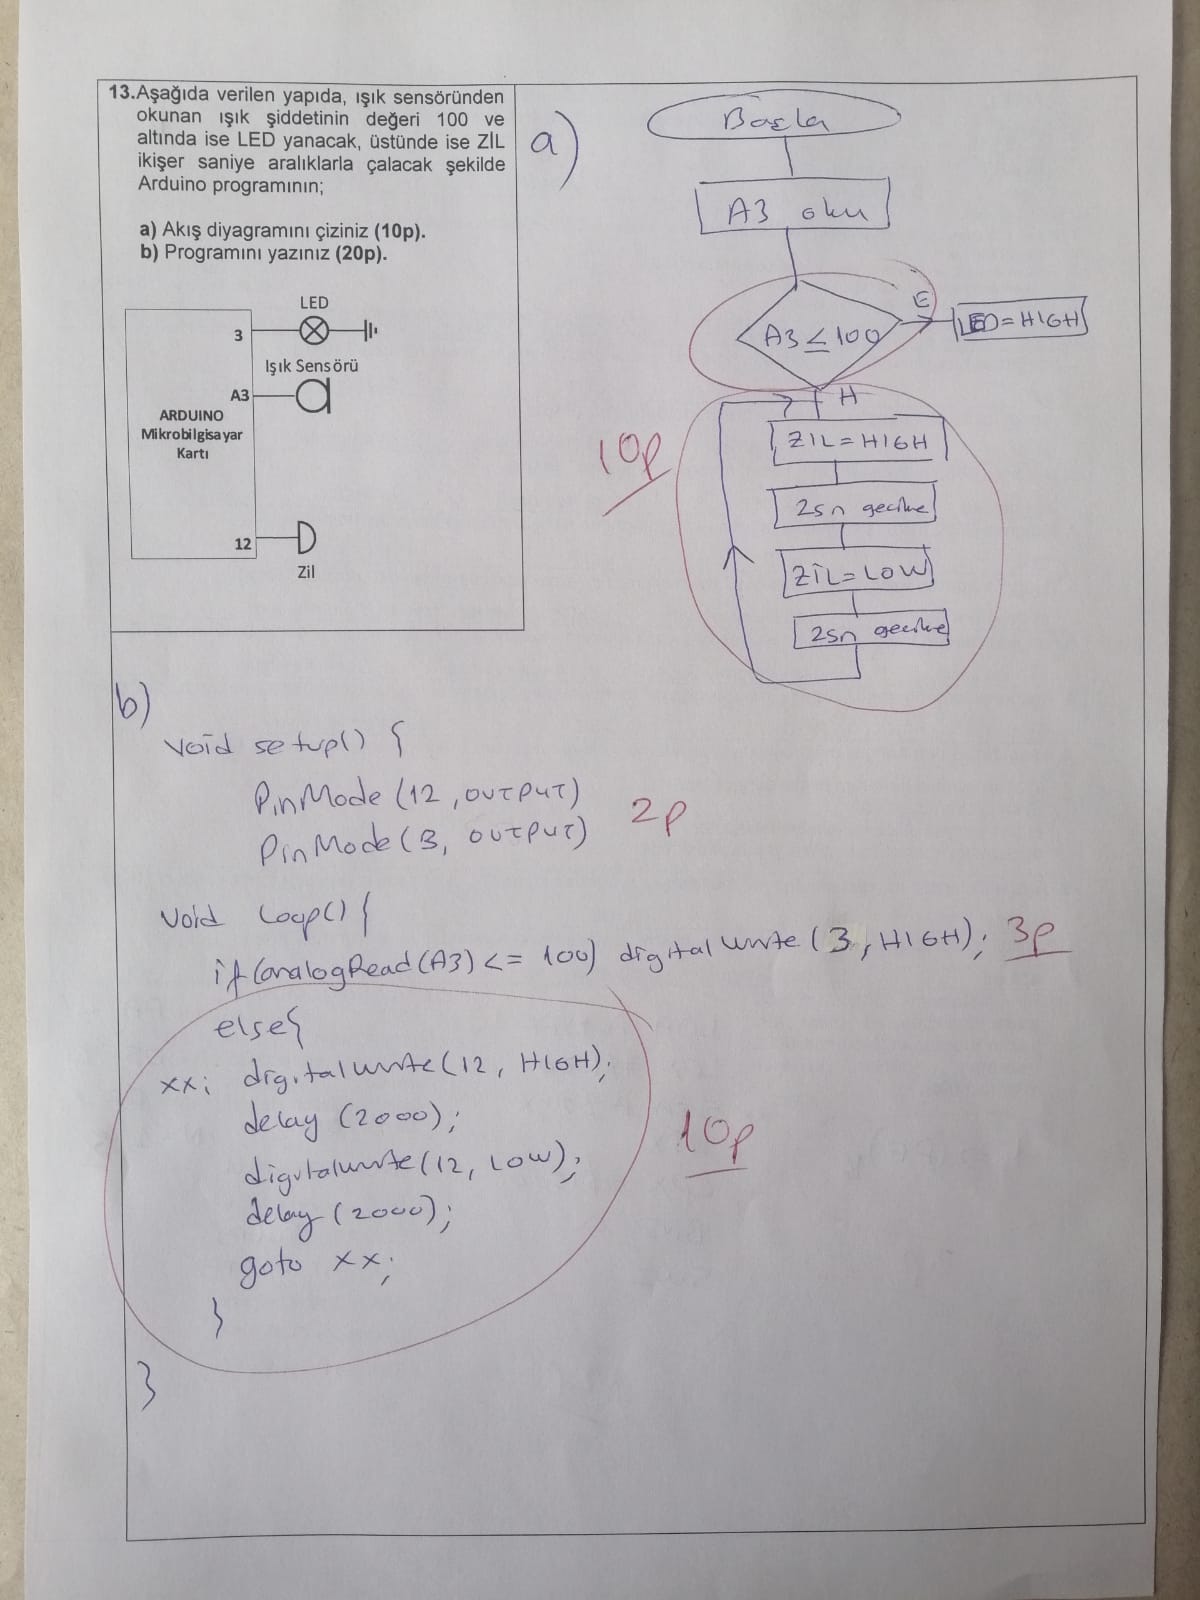 13.Aşağıda verilen yapıda, ışık sensöründen
okunan ışık şiddetinin değeri 100 ve
altında ise LED yanacak, üstünde ise ZİL
ikişer saniye aralıklarla çalacak şekilde
Arduino programının;
a) Akış diyagramını çiziniz (10p).
b) Programını yazınız (20p).
LED
3
Işık Sensörü
A3
ARDUINO
Mikrobilgisayar
Kartı
12
Zil
a)
Başla
A3 oku
A3 ≤ 100
E
LED=HIGH
H
ZIL=HIGH
2sn gecikme
ZİL=LOW
2sn gecikme
10p
b)
void setup() {
PinMode (12, OUTPUT)
PinMode (3, OUTPUT)
2p
void loop() {
if (analogRead(A3) <= 100) digitalwrite (3, HIGH); 3p
else{
xx; digitalwrite(12, HIGH);
delay (2000);
digitalwrite(12, LOW);
delay (2000);
goto xx;
}
10p
}